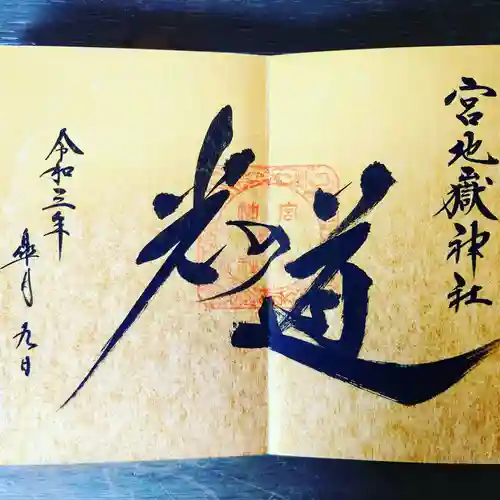 宮地嶽神社
光の道
令和三年
皐月九日